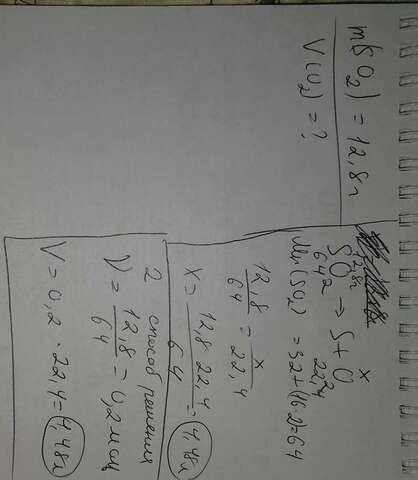 m(SO₂) = 12,8г
V(O₂) = ?
12,8г x
SO₂ → S + O
64 22,4
Mr(SO₂) = 32+(16·2)=64
12,8/64 = x/22,4
x = 12,8 22,4/64 = 4,48л
2 способ решения
ν = 12,8/64 = 0,2 моль
V = 0,2 · 22,4 = 4,48л